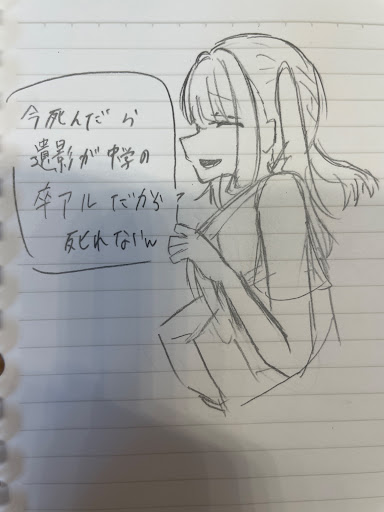 今死んだら
遺影が中学の
卒アルだから
死れないん